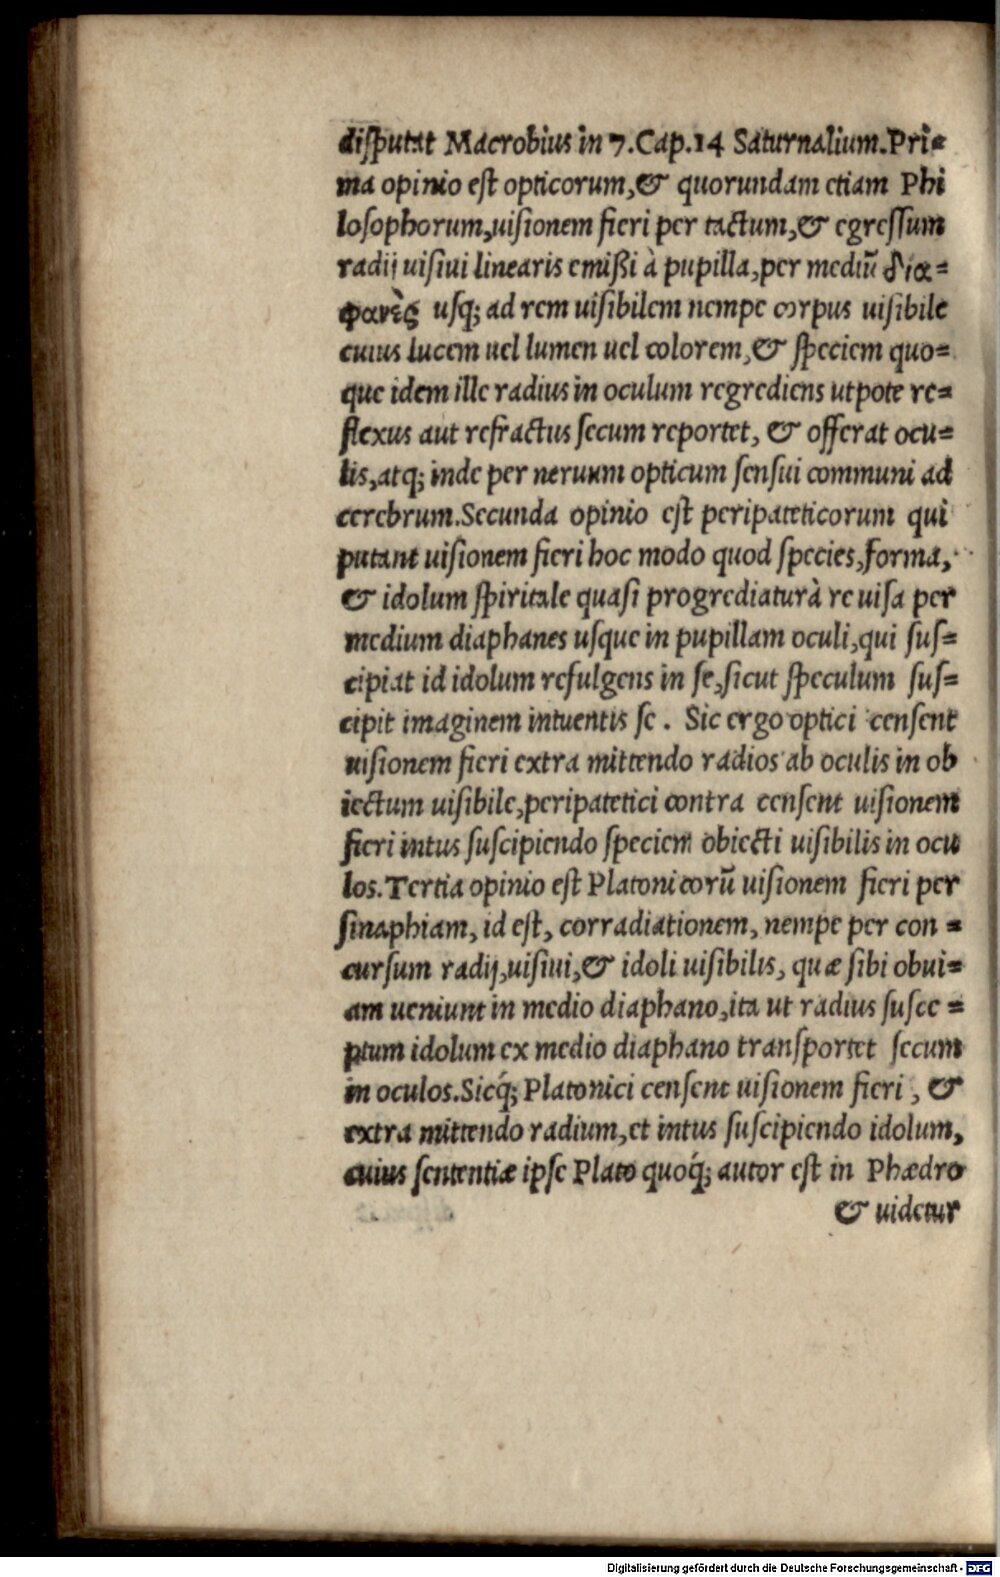 disputat Macrobius in 7. Cap. 14 Saturnalium. Pri=
ma opinio est opticorum, & quorundam etiam Phi
losophorum, uisionem fieri per tactum, & egressum
radij uisiui linearis emißi à pupilla, per mediũ δια=
φανὲς usq; ad rem uisibilem nempe corpus uisibile
cuius lucem uel lumen uel colorem, & speciem quo=
que idem ille radius in oculum regrediens utpote re=
flexus aut refractus secum reportet, & offerat ocu=
lis, atq; inde per neruum opticum sensui communi ad
cerebrum. Secunda opinio est peripateticorum qui
putant uisionem fieri hoc modo quod species, forma,
& idolum spiritale quasi progrediatur à re uisa per
medium diaphanes usque in pupillam oculi, qui sus=
cipiat id idolum refulgens in se, sicut speculum sus=
cipit imaginem intuentis se. Sic ergo optici censent
uisionem fieri extra mittendo radios ab oculis in ob
iectum uisibile, peripatetici contra censent uisionem
fieri intus suscipiendo speciem obiecti uisibilis in ocu
los. Tertia opinio est Platonicorũ uisionem fieri per
sinaphiam, id est, corradiationem, nempe per con=
cursum radij, uisiui, & idoli uisibilis, quæ sibi obui=
am ueniunt in medio diaphano, ita ut radius susce=
ptum idolum ex medio diaphano transportet secum
in oculos. Sicq́; Platonici censent uisionem fieri, &
extra mittendo radium, et intus suscipiendo idolum,
cuius sententiæ ipse Plato quoq́; autor est in Phædro
& uidetur
Digitalisierung gefördert durch die Deutsche Forschungsgemeinschaft - DFG